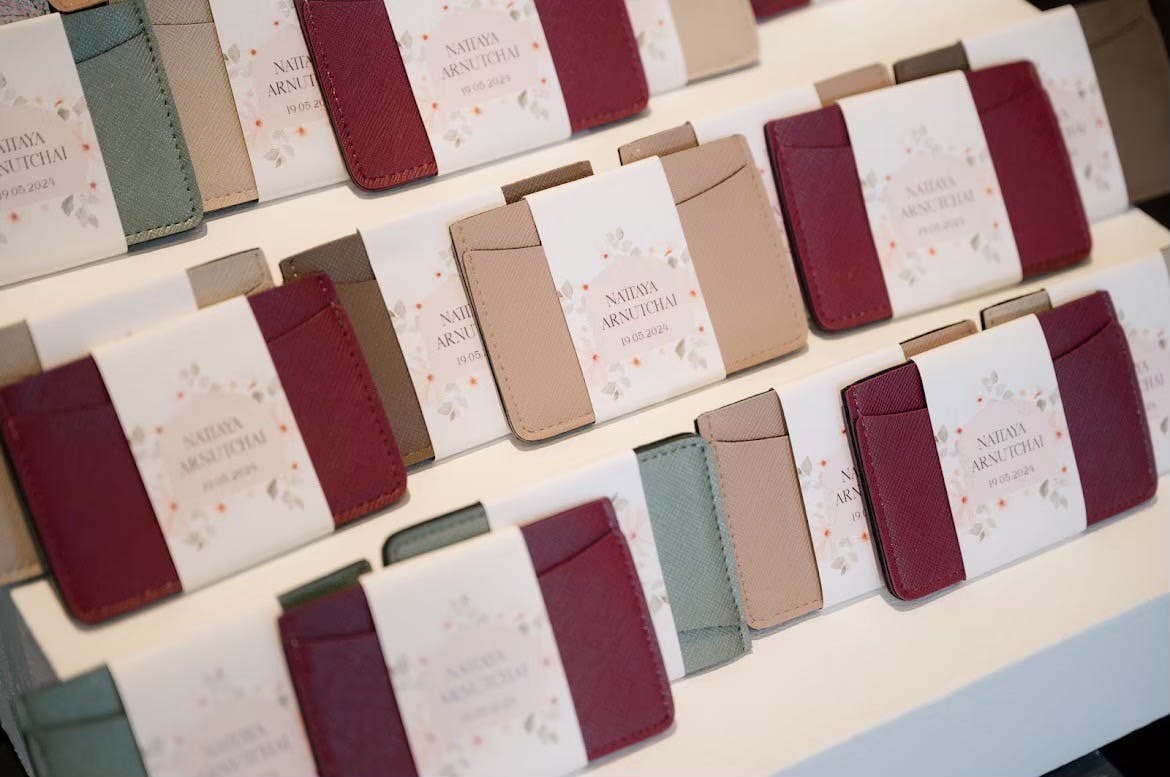 NATTAYA
ARNUTCHAI
19.05.2024
NATTAYA
ARNUTCHAI
19.05.2024
NATTAYA
ARNUTCHAI
19.05.2024
NATTAYA
ARNUTCHAI
19.05.2024
NATTAYA
ARNUTCHAI
19.05.2024
NATTAYA
ARNUTCHAI
19.05.2024
NATTAYA
ARNUTCHAI